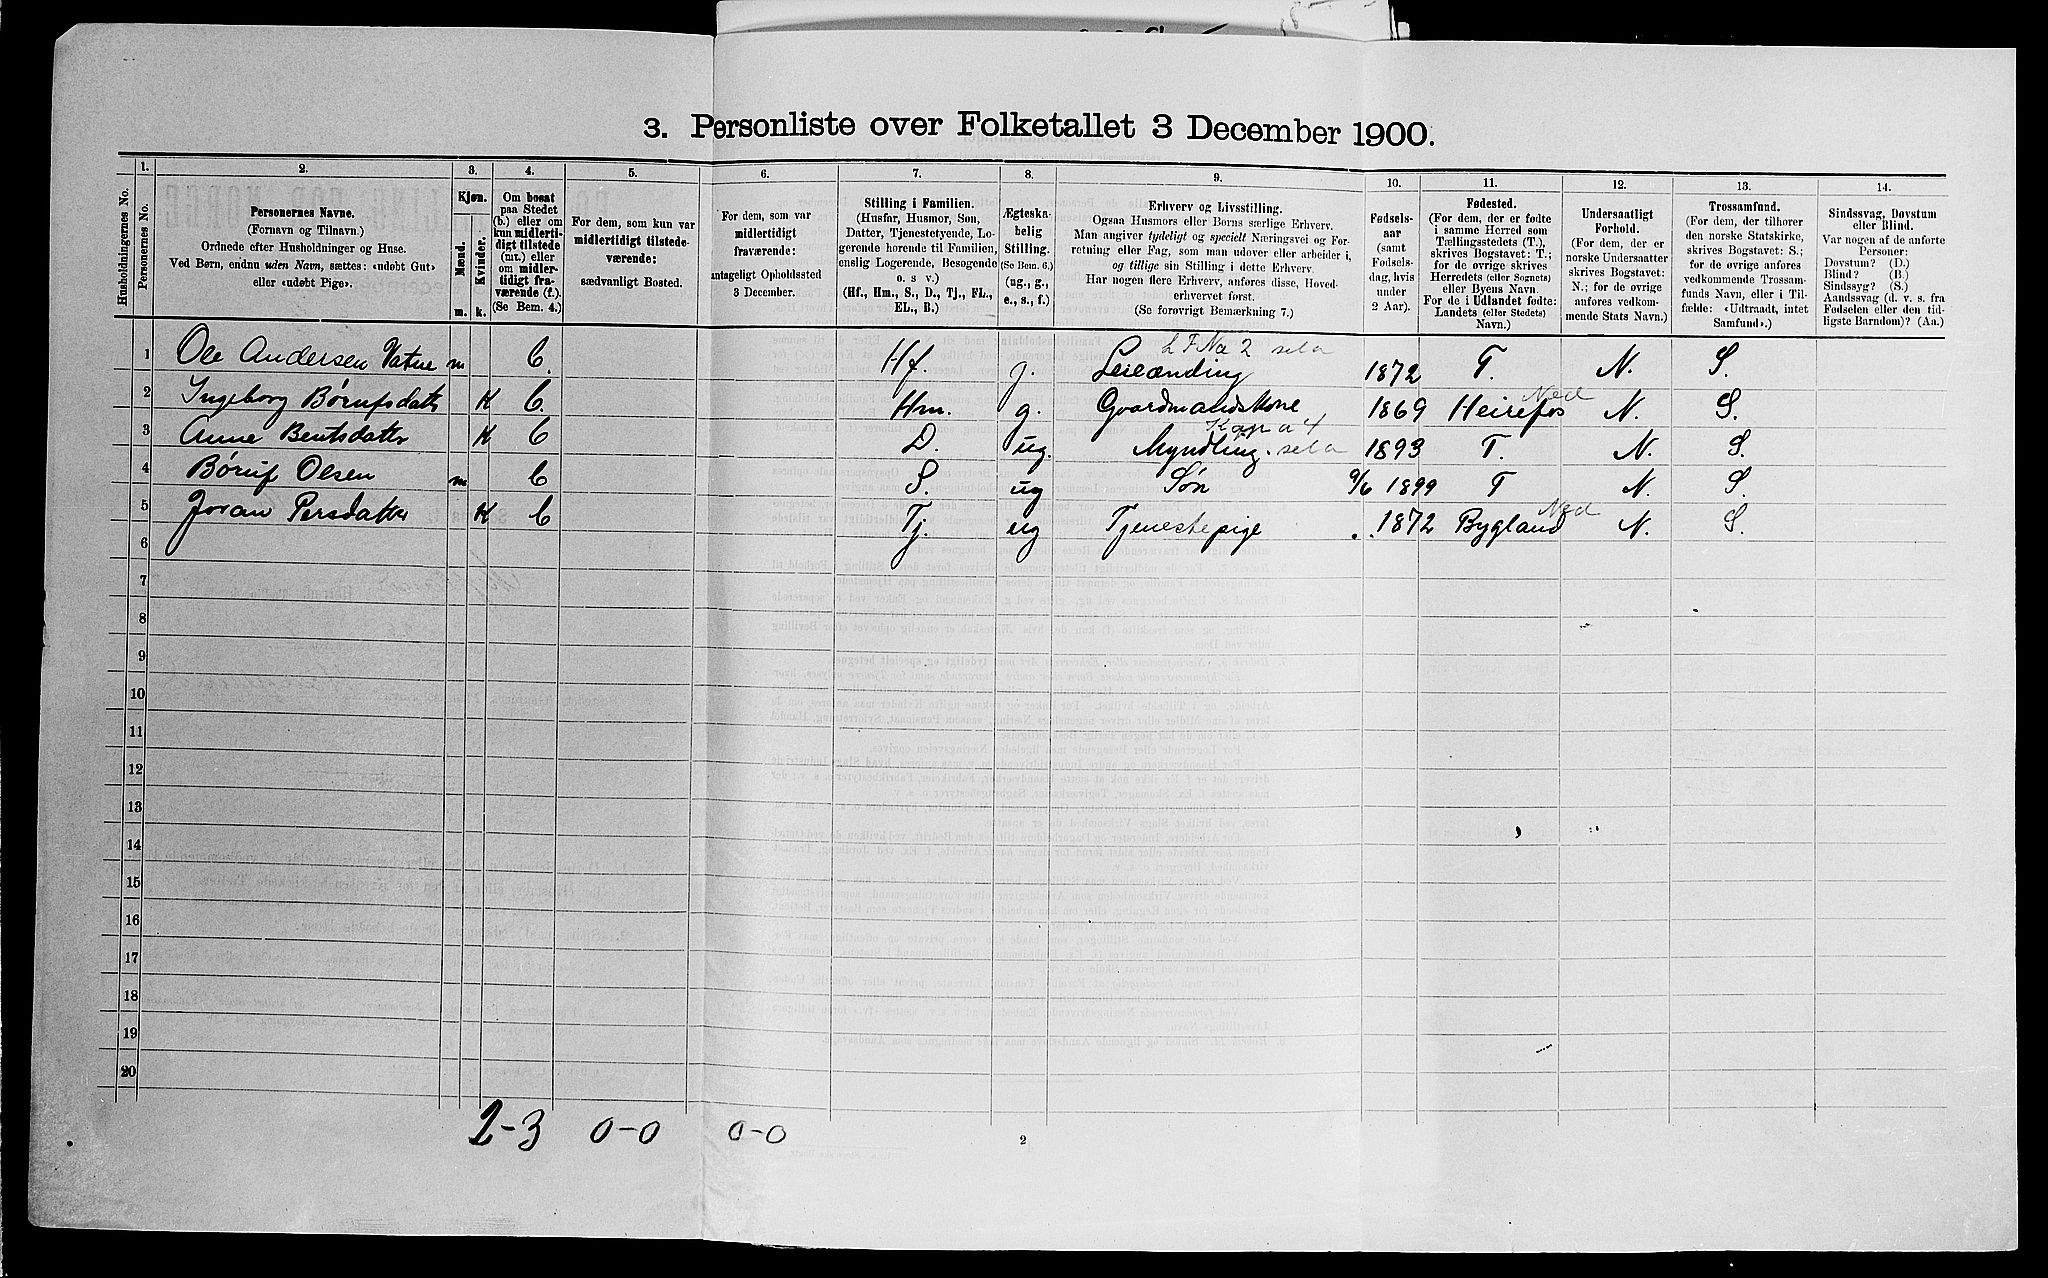 3. Personliste over Folketallet 3 December 1900.
Husholdningernes No.
1.
Personernes No.
2.
Personernes Navne.
(Fornavn og Tilnavn.)
Ordnede efter Husholdninger og Huse.
Ved Børn, endnu uden Navn, sættes: «udøbt Gut»
eller «udøbt Pige».
3.
Kjøn.
Mænd.
Kvinder.
m.
k.
4.
Om bosat
paa Stedet
(b.) eller om
kun midlerti-
digt tilstede
(mt.) eller
om midler-
tidigt fra-
værende (f.)
(Se Bem. 4.)
5.
For dem, som kun var
midlertidigt tilstede-
værende:
sædvanligt Bosted.
6.
For dem, som var
midlertidigt
fraværende:
antageligt Opholdssted
3 December.
7.
Stilling i Familien.
(Husfar, Husmor, Søn,
Datter, Tjenestetyende, Lo-
gerende hørende til Familien,
enslig Logerende, Besøgende
o. s v.)
(Hf., Hm., S., D., Tj., FL.,
EL., B.)
8.
Ægteska-
belig
Stilling.
(Se Bem. 6.)
(ug., g.,
e., s., f.)
9.
Erhverv og Livsstilling.
Ogsaa Husmors eller Børns særlige Erhverv.
Man angiver tydeligt og specielt Næringsvei og For-
retning eller Fag, som man udover eller arbeider i,
og tillige sin Stilling i dette Erhverv.
Har nogen flere Erhverv, anføres disse, Hoved-
erhvervet først.
(Se forøvrigt Bemærkning 7.)
10.
Fødsels-
aar
(samt
Fødsels-
dag, hvis
under
2 Aar).
11.
Fødested.
(For dem, der er fødte
i samme Herred som
Tællingsstedets (T.),
skrives Bogstavet: T.;
for de øvrige skrives
Herredets (eller Sognets)
eller Byens Navn.
For de i Udlandet fødte:
Landets (eller Stedets)
Navn.)
12.
Undersaatligt
Forhold.
(For dem, der er
norske Undersaatter
skrives Bogstavet:
N.; for de øvrige
anføres vedkom-
mende Stats Navn.)
13.
Trossamfund.
(For dem, der tilhører
den norske Statskirke,
skrives Bogstavet: S.;
for de øvrige anføres
vedkommende Trossam-
funds Navn, eller i Til-
fælde: «Udtraadt, intet
Samfund».)
14.
Sindssvag, Døvstum
eller Blind.
Var nogen af de anførte
Personer:
Døvstum? (D.)
Blind? (B.)
Sindssyg? (S.)
Aandssvag (d. v. s. fra
Fødselen eller den tid-
ligste Barndom)? (Aa.)
1 Ole Andersen Vatne m b. Hf. g. Leilænding 1872 T. N. S.
2 Ingeborg Børufsdatt K b. Hm. g. Gaardmandskone 1869 Heirefos Ned N. S.
3 Anne Bentsdatter K b D. ug. Myndling 1893 T. N. S.
4 Børuf Olsen m b S. ug Søn 9/6 1899 T N. S.
5 Joran Persdatter K b Tj. ug Tjenestepige 1872 Bygland Ned N. S.
6
7
8
9
10
11
12
13
14
15
16
17
18
19
20
2-3 0-0 0-0
2